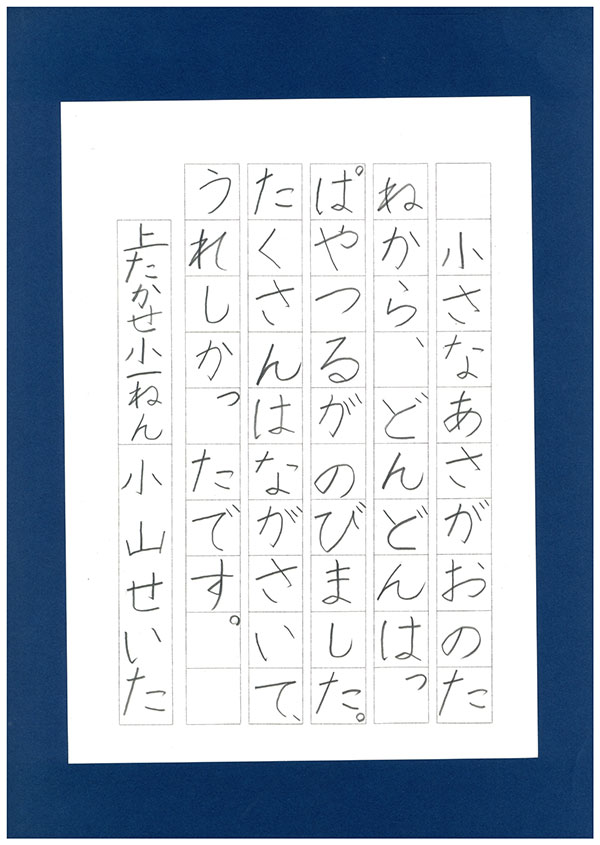 小さなあさがおのた
ねから、どんどんはっ
ぱやつるがのびました。
たくさんはながさいて、
うれしかったです。
上たかせ小一ねん 小山せいた